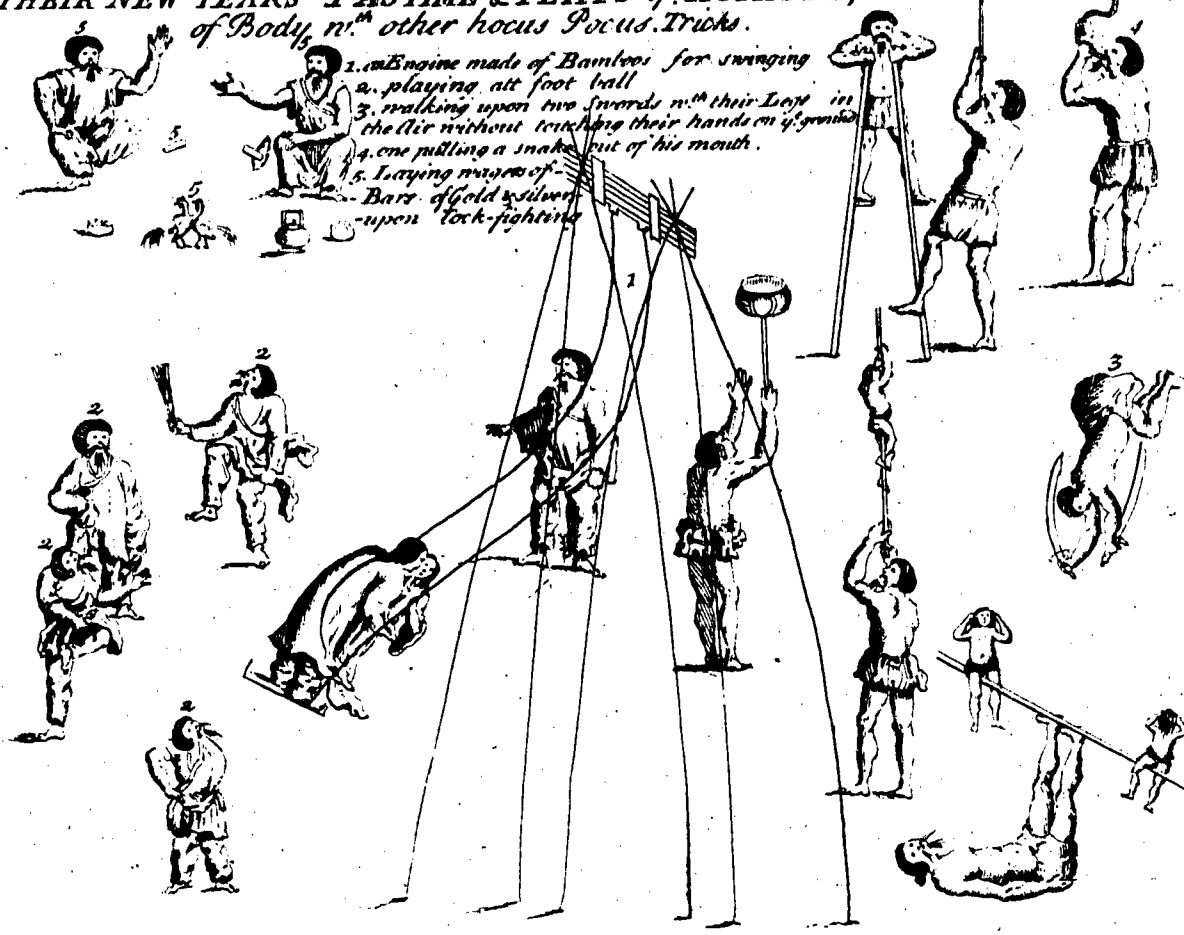 THEIR NEW YEARS PASTIME & FEATS of
of Body, wth. other hocus Pocus. Tricks.
1. an Engine made of Bamboos for swinging
2. playing att foot ball
3. walking upon two Swords wth. their Legs in
the Air without touching their hands on ye. ground
4. one pulling a snake out of his mouth.
5. Laying wagers of-
- Bars of Gold & silver
-upon Cock-fighting
5
5
5
5
4
1
2
2
3
2
2